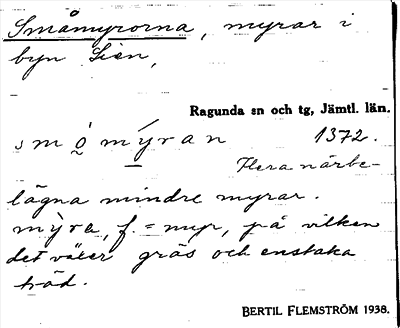 Småmyrorna, myrar i
byn Lien,
Ragunda sn och tg, Jämtl. län.
smo̱mýran 1372.
Flera närbe-
lägna mindre myrar.
mỳra, f. = myr, på vilken
det växer gräs och enstaka
träd.
BERTIL FLEMSTRÖM 1938.